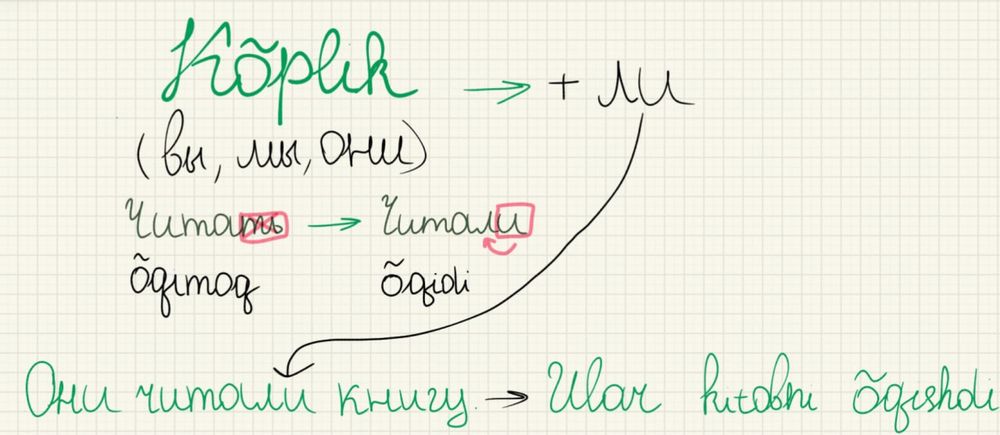 Kõplik → + ли
(вы, мы, они)
Читать → Читали
õqimoq õqidi
Они читали книгу → Ular kitobni õqishdi